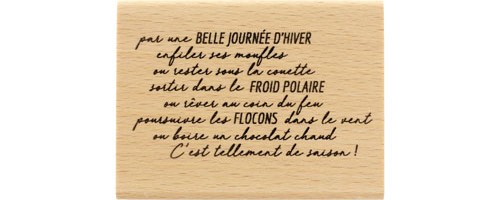 par une BELLE JOURNÉE D'HIVER
enfiler ses moufles
ou rester sous la couette
sortir dans le FROID POLAIRE
ou rêver au coin du feu
poursuivre les FLOCONS dans le vent
ou boire un chocolat chaud
C'est tellement de saison !